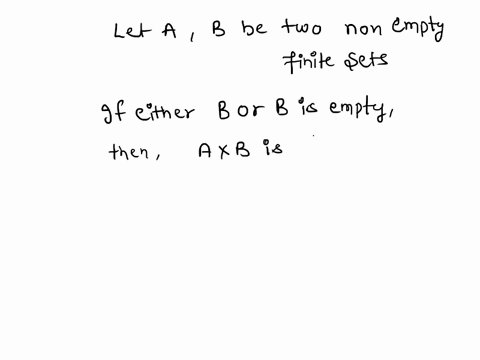 Let A, B be two non empty
finite sets
If either B or B is empty,
then, A × B is